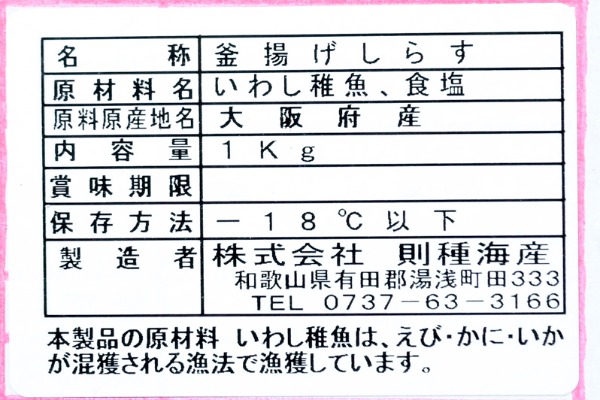 名称 釜揚げしらす
原材料名 いわし稚魚、食塩
原料原産地名 大阪府産
内容量 1Kg
賞味期限
保存方法 －18℃以下
製造者 株式会社 則種海産
和歌山県有田郡湯浅町田333
TEL 0737－63－3166
本製品の原材料 いわし稚魚は、えび・かに・いか
が混獲される漁法で漁獲しています。